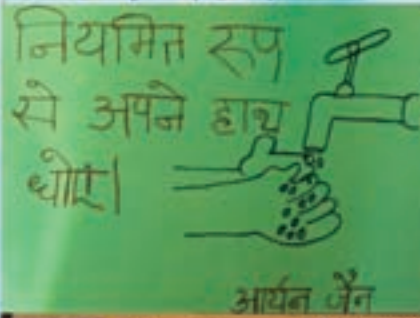 नियमित रूप
से अपने हाथ
धोएं।
आर्यन जैन